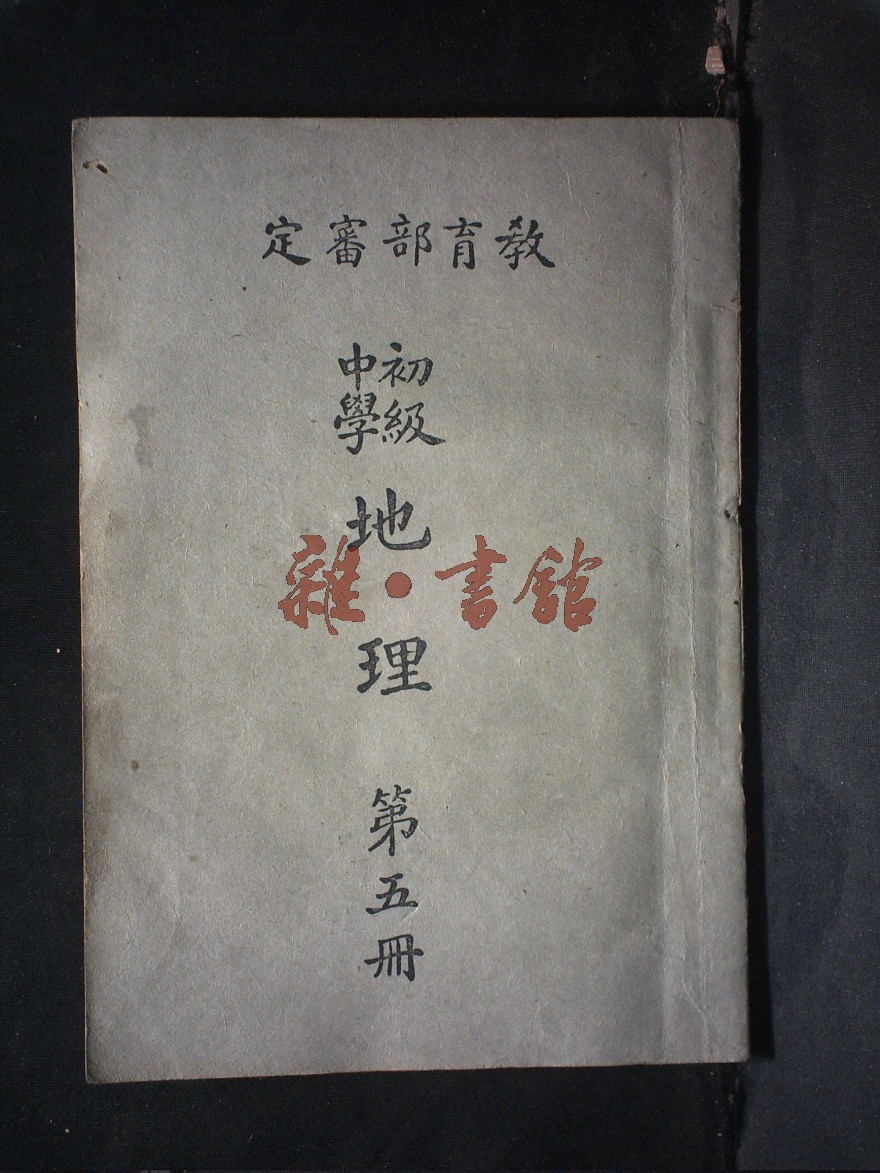 教育部審定
初級
中學
地理
第五冊
雜·書館